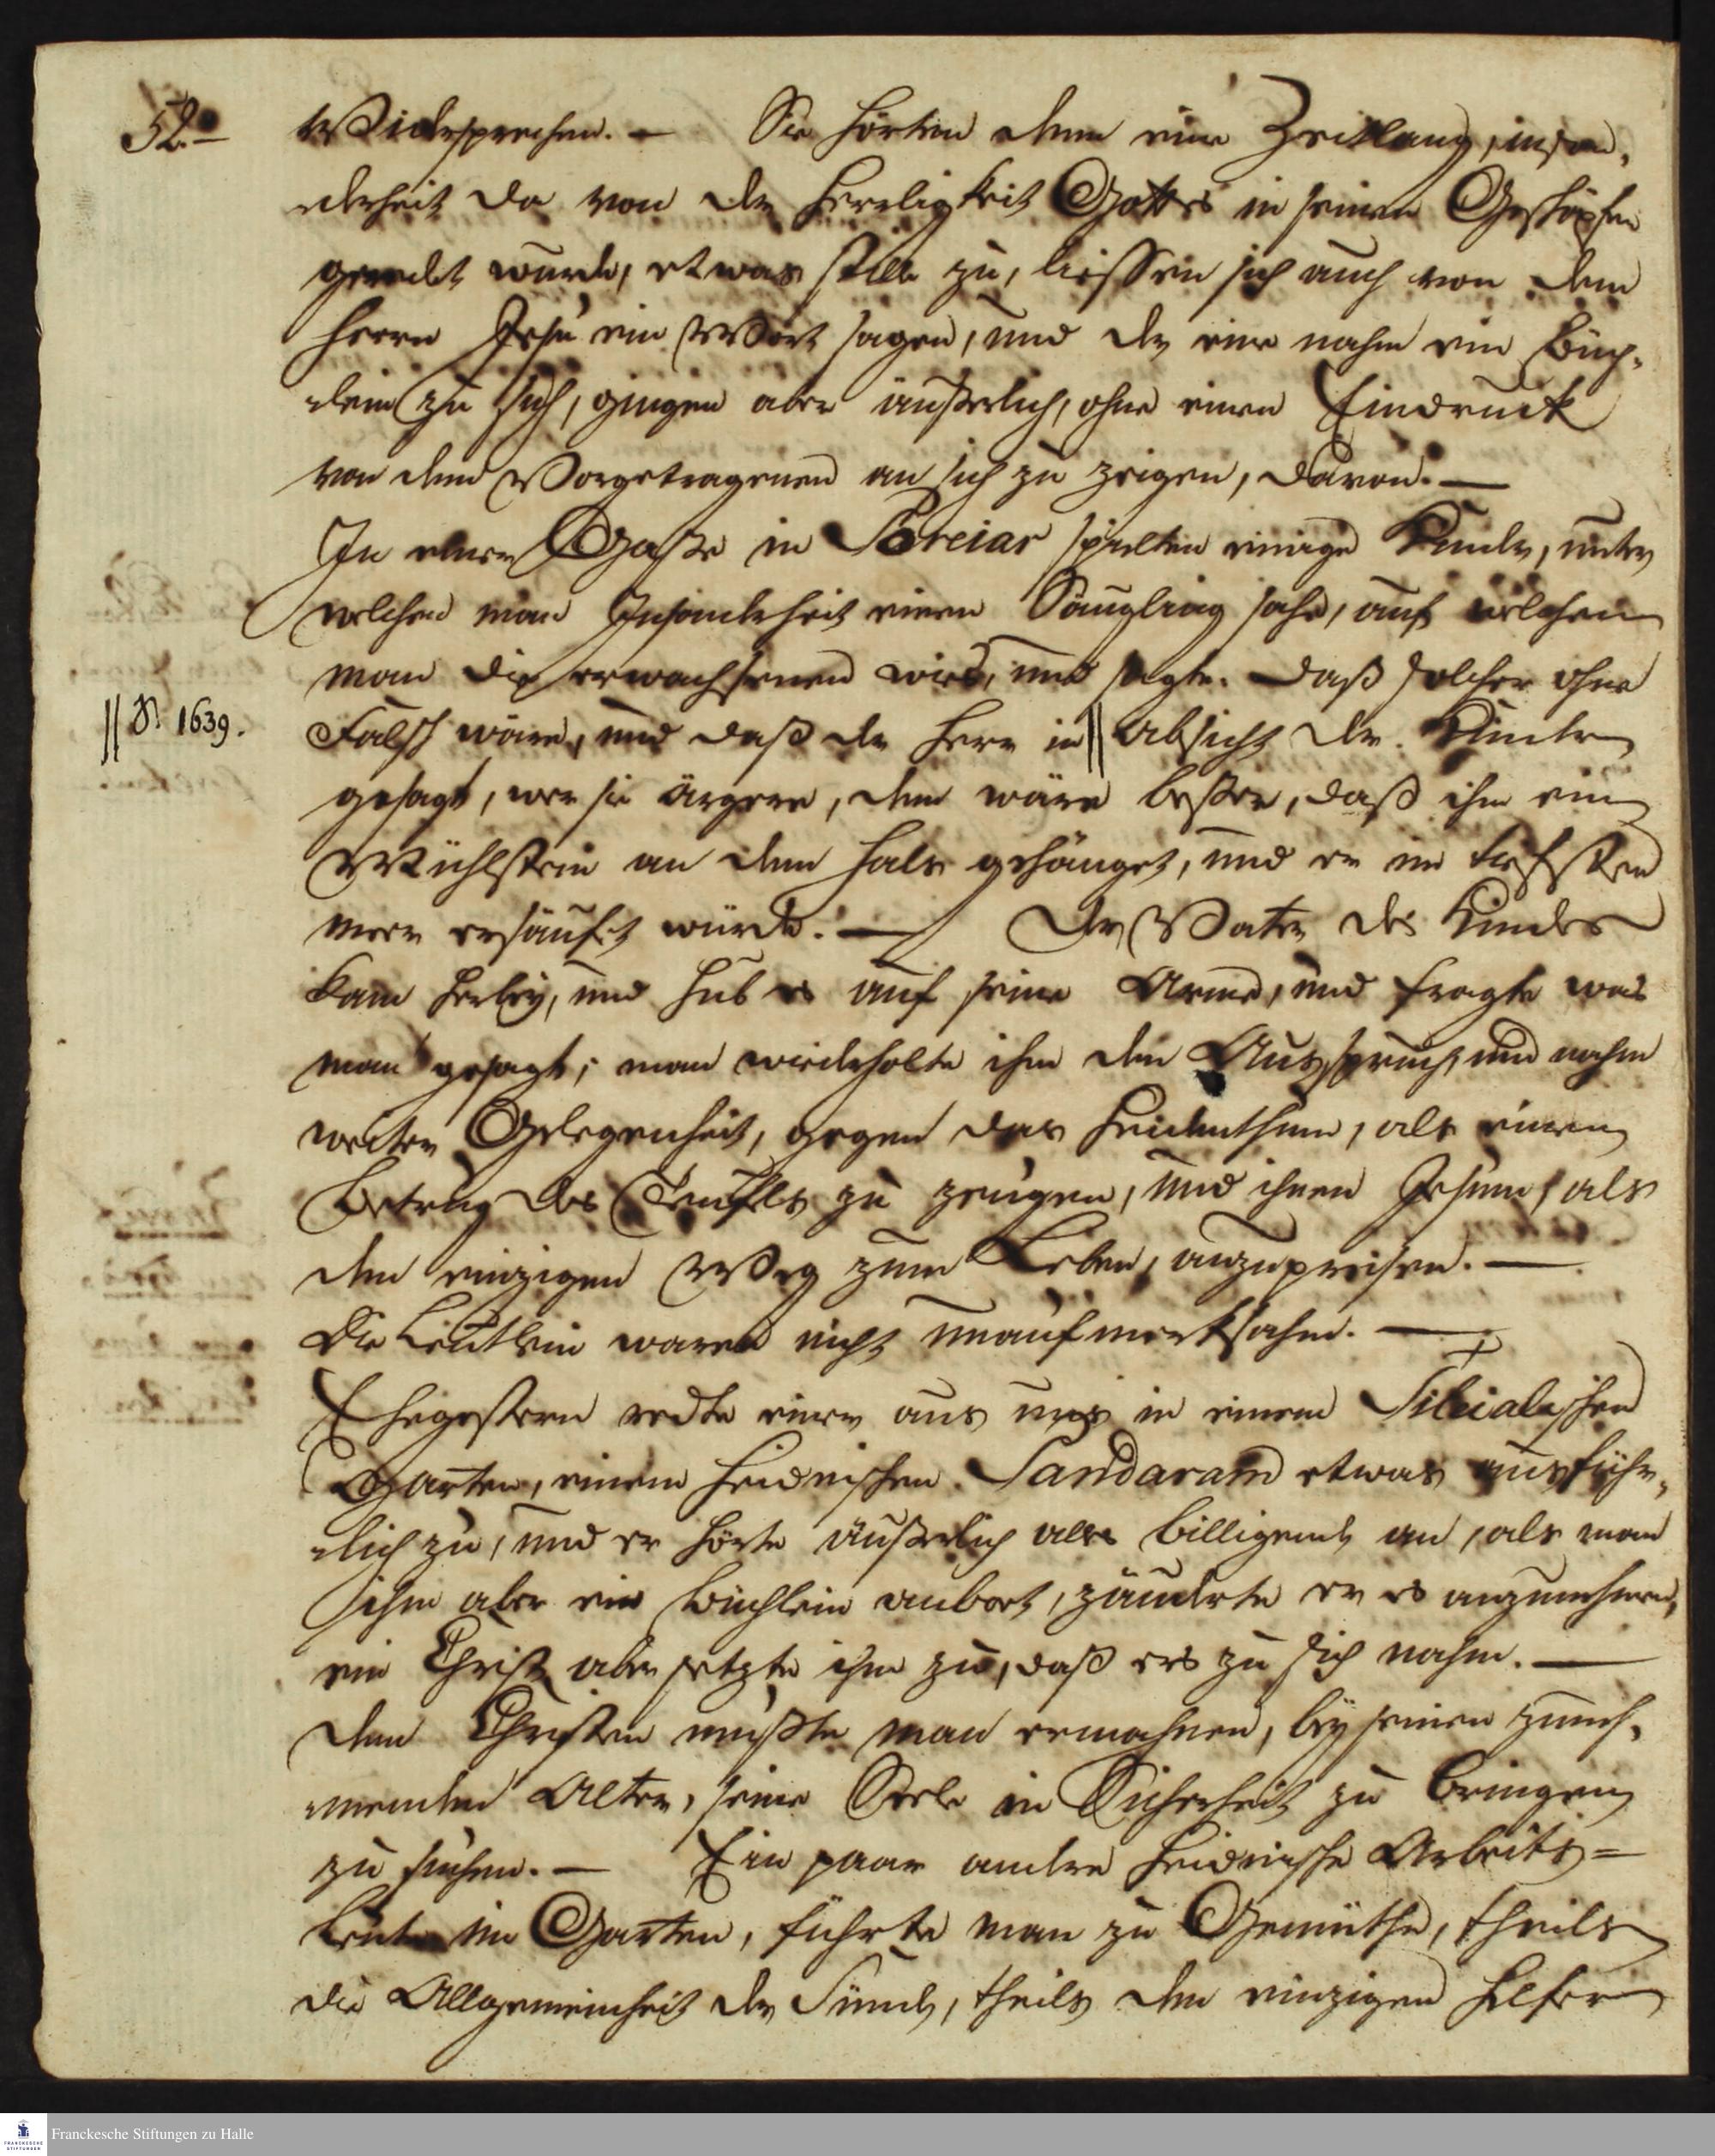 52.
Widersprechen. — Sie hörten denn eine Zeitlang, inson-
derheit da von der Herrligkeit Gottes in seinen Geschöpfen
geredet wurde, etwas stille zu, liessen sich auch von dem
Herrn Jesu ein Wort sagen, und der eine nahm ein Büch-
lein zu sich, gingen aber äußerlich, ohne einen Eindruck
von dem Vorgetragenen an sich zu zeigen, davon. —
In einer Gaße in Poreiar spielten einige Kinder, unter
welchen man Insonderheit einen Säugling sahe, auf welchen
man die erwachsenen wies, und sagte. Daß solcher ohne
|| P. 1639.
Falsch wäre, und daß der Herr in || Absicht der Kinder
gesagt, wer sie ärgere, dem wäre beßer, daß ihm ein
Mühlstein an den Hals gehänget, und er im tiefsten
meer ersäufet würde. — Der Vater des Kindes
kam herbey, und hub es auf seine Arme, und fragte was
man gesagt; man wiederholte ihm den Ausspruch, und nahm
weiter Gelegenheit, gegen das Heidenthum, als einen
Betrug des Teufels zu zeugen, und ihnen Jesum, als
den einzigen Weg zum Leben, anzupreisen. —
Die Leutlein waren nicht unaufmerksahm. —
Ehegestern redte einer aus uns in einem Sileialischen
Garten, einem heidnischen Pandaram etwas ausführ-
lich zu, und er hörte äußerlich alles billigend an, als man
ihm aber ein büchlein anbot, zäuderte er es anzunehmen,
ein Christ aber setzte ihm zu, daß ers zu sich nahm. —
Den Christen mußte man ermahnen, bey seinen zuneh-
menden Alter, seine Seele in Sicherheit zu bringen
zu suchen. — Ein paar andre heidnische Arbeits=
leute im Garten, führte man zu Gemüthe, theils
die Allgemeinheit der Sünde, theils den einzigen Helfer
Franckesche Stiftungen zu Halle